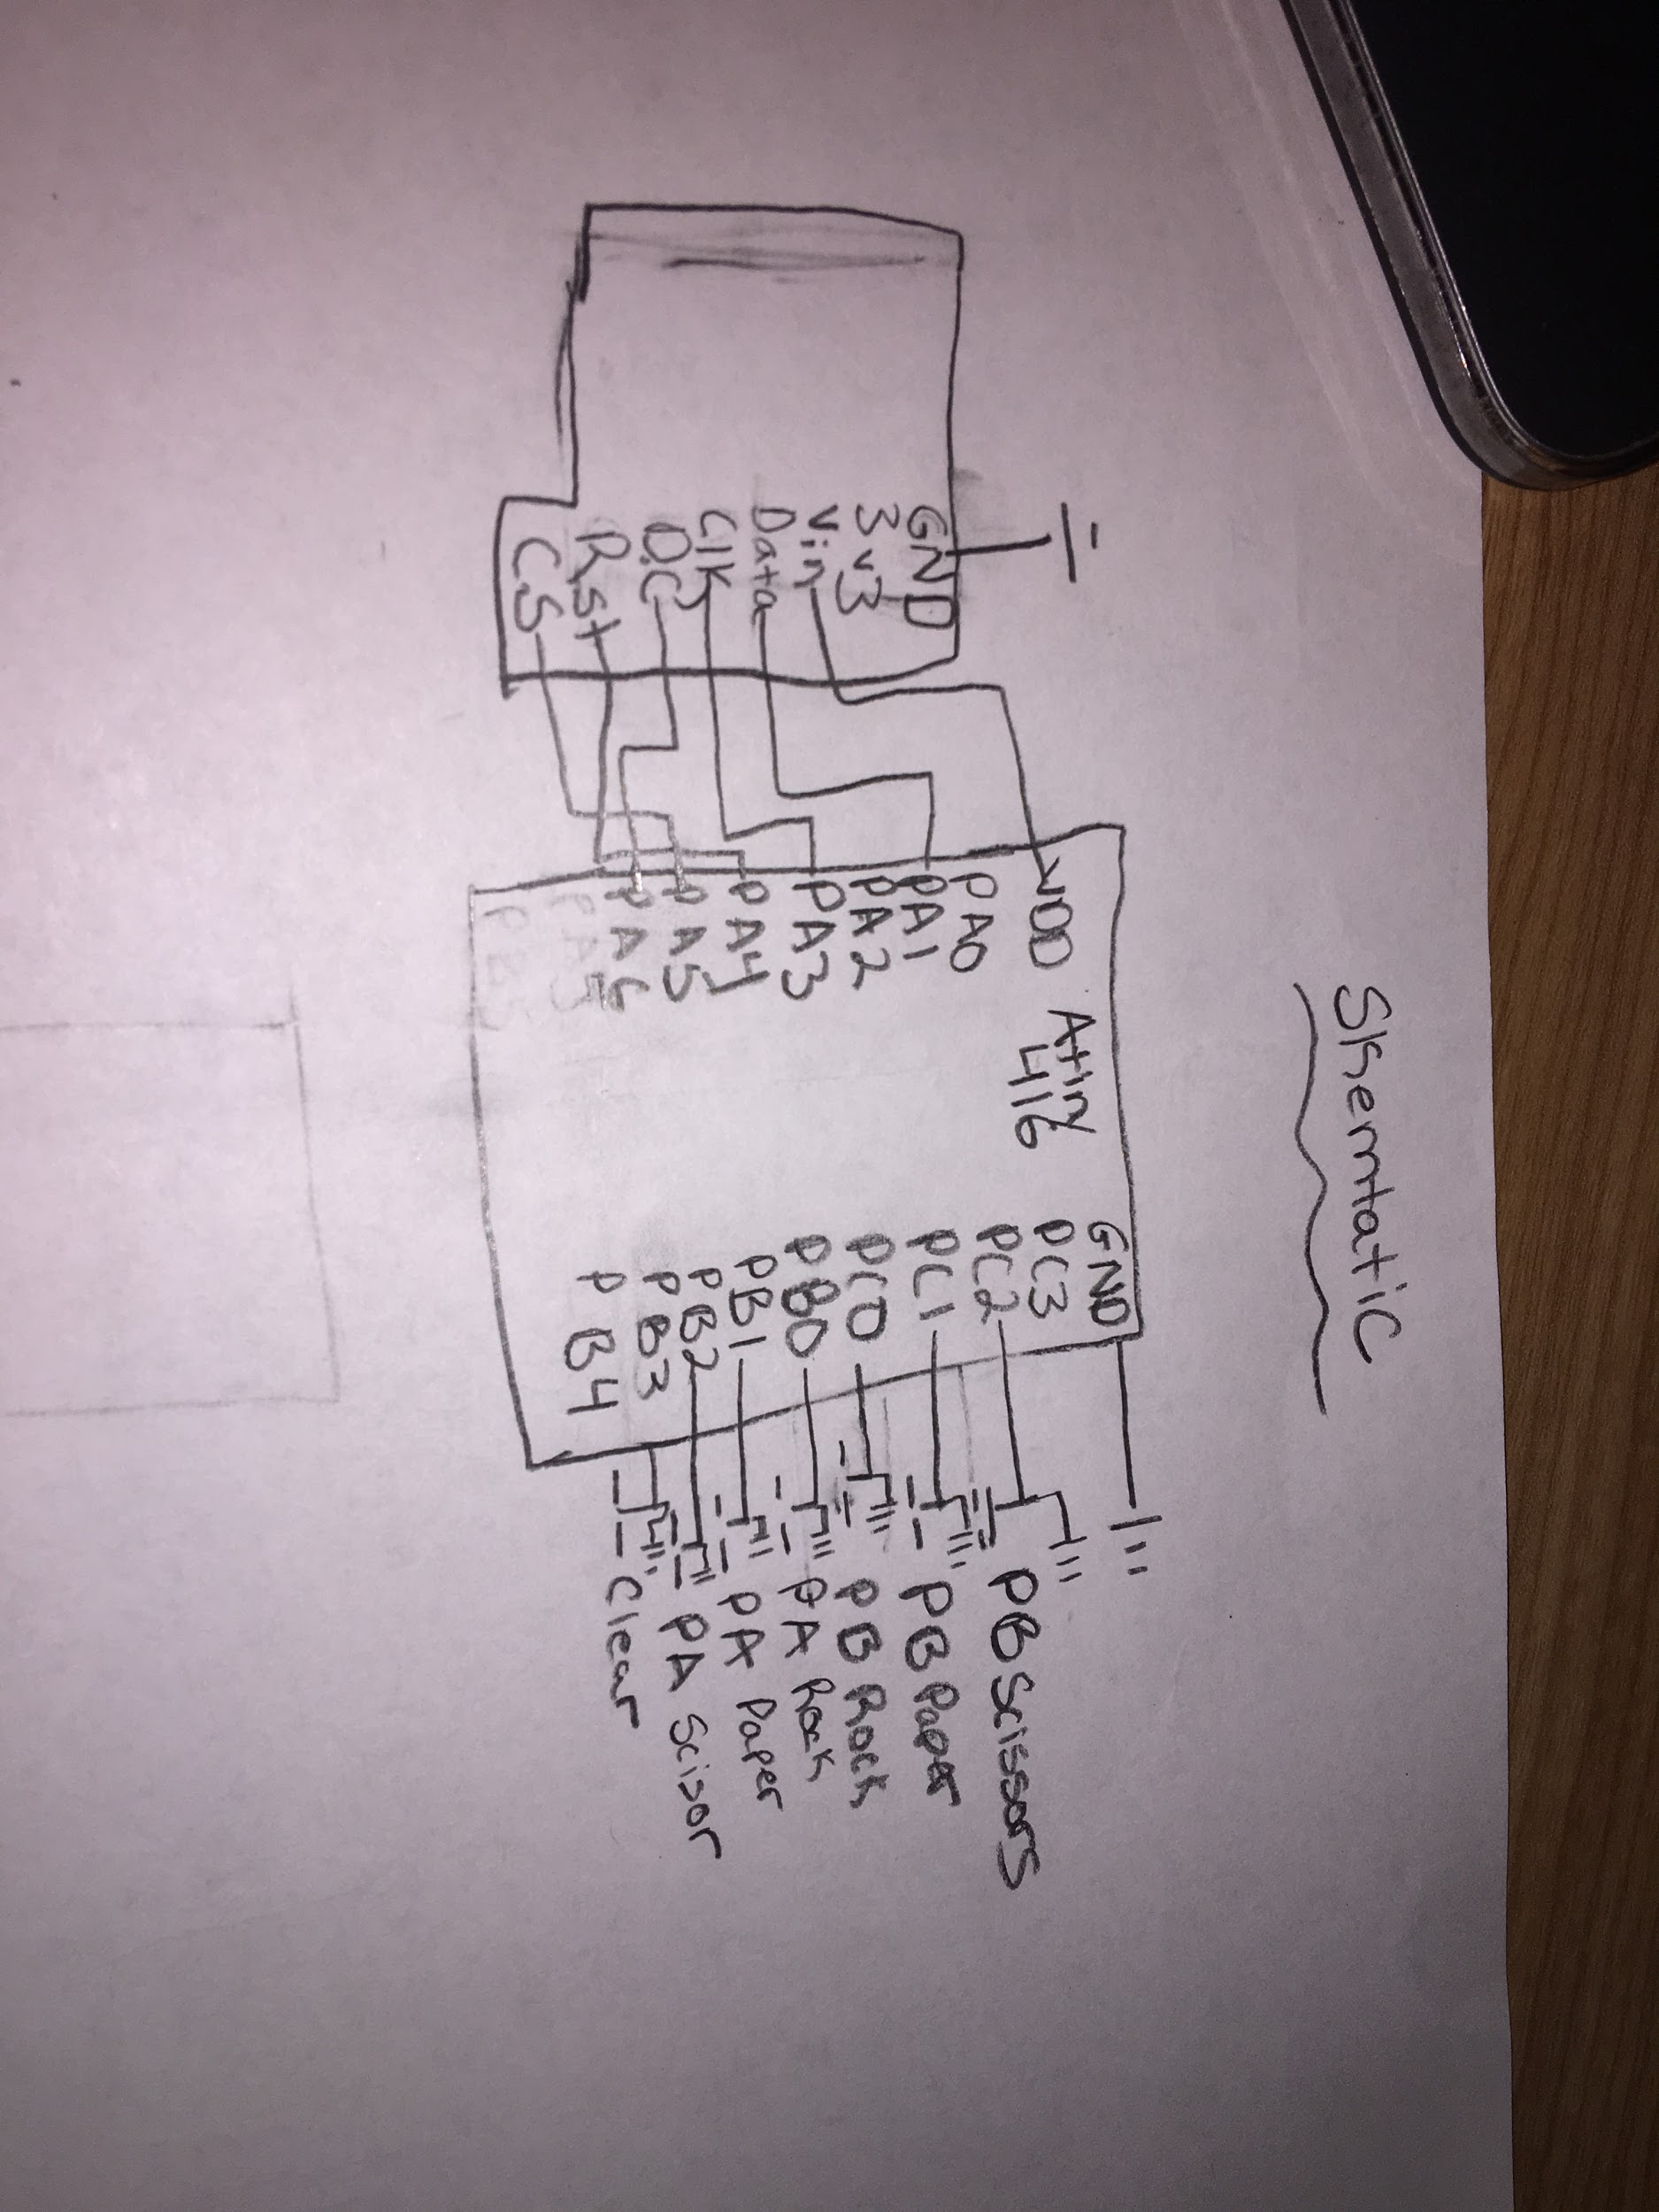 Shemtatic
GND
3v3
Vin
Data
Clk
D.C
Rst
C.S
VDD
PA0
PA1
PA2
PA3
PA4
PA5
PA6
Atiny
416
GND
PC3
PC2
PC1
PC0
PB0
PB1
PB2
PB3
PB4
PB Scissors
PB Paper
PB Rock
PA Rock
PA Paper
PA Scisor
Clear